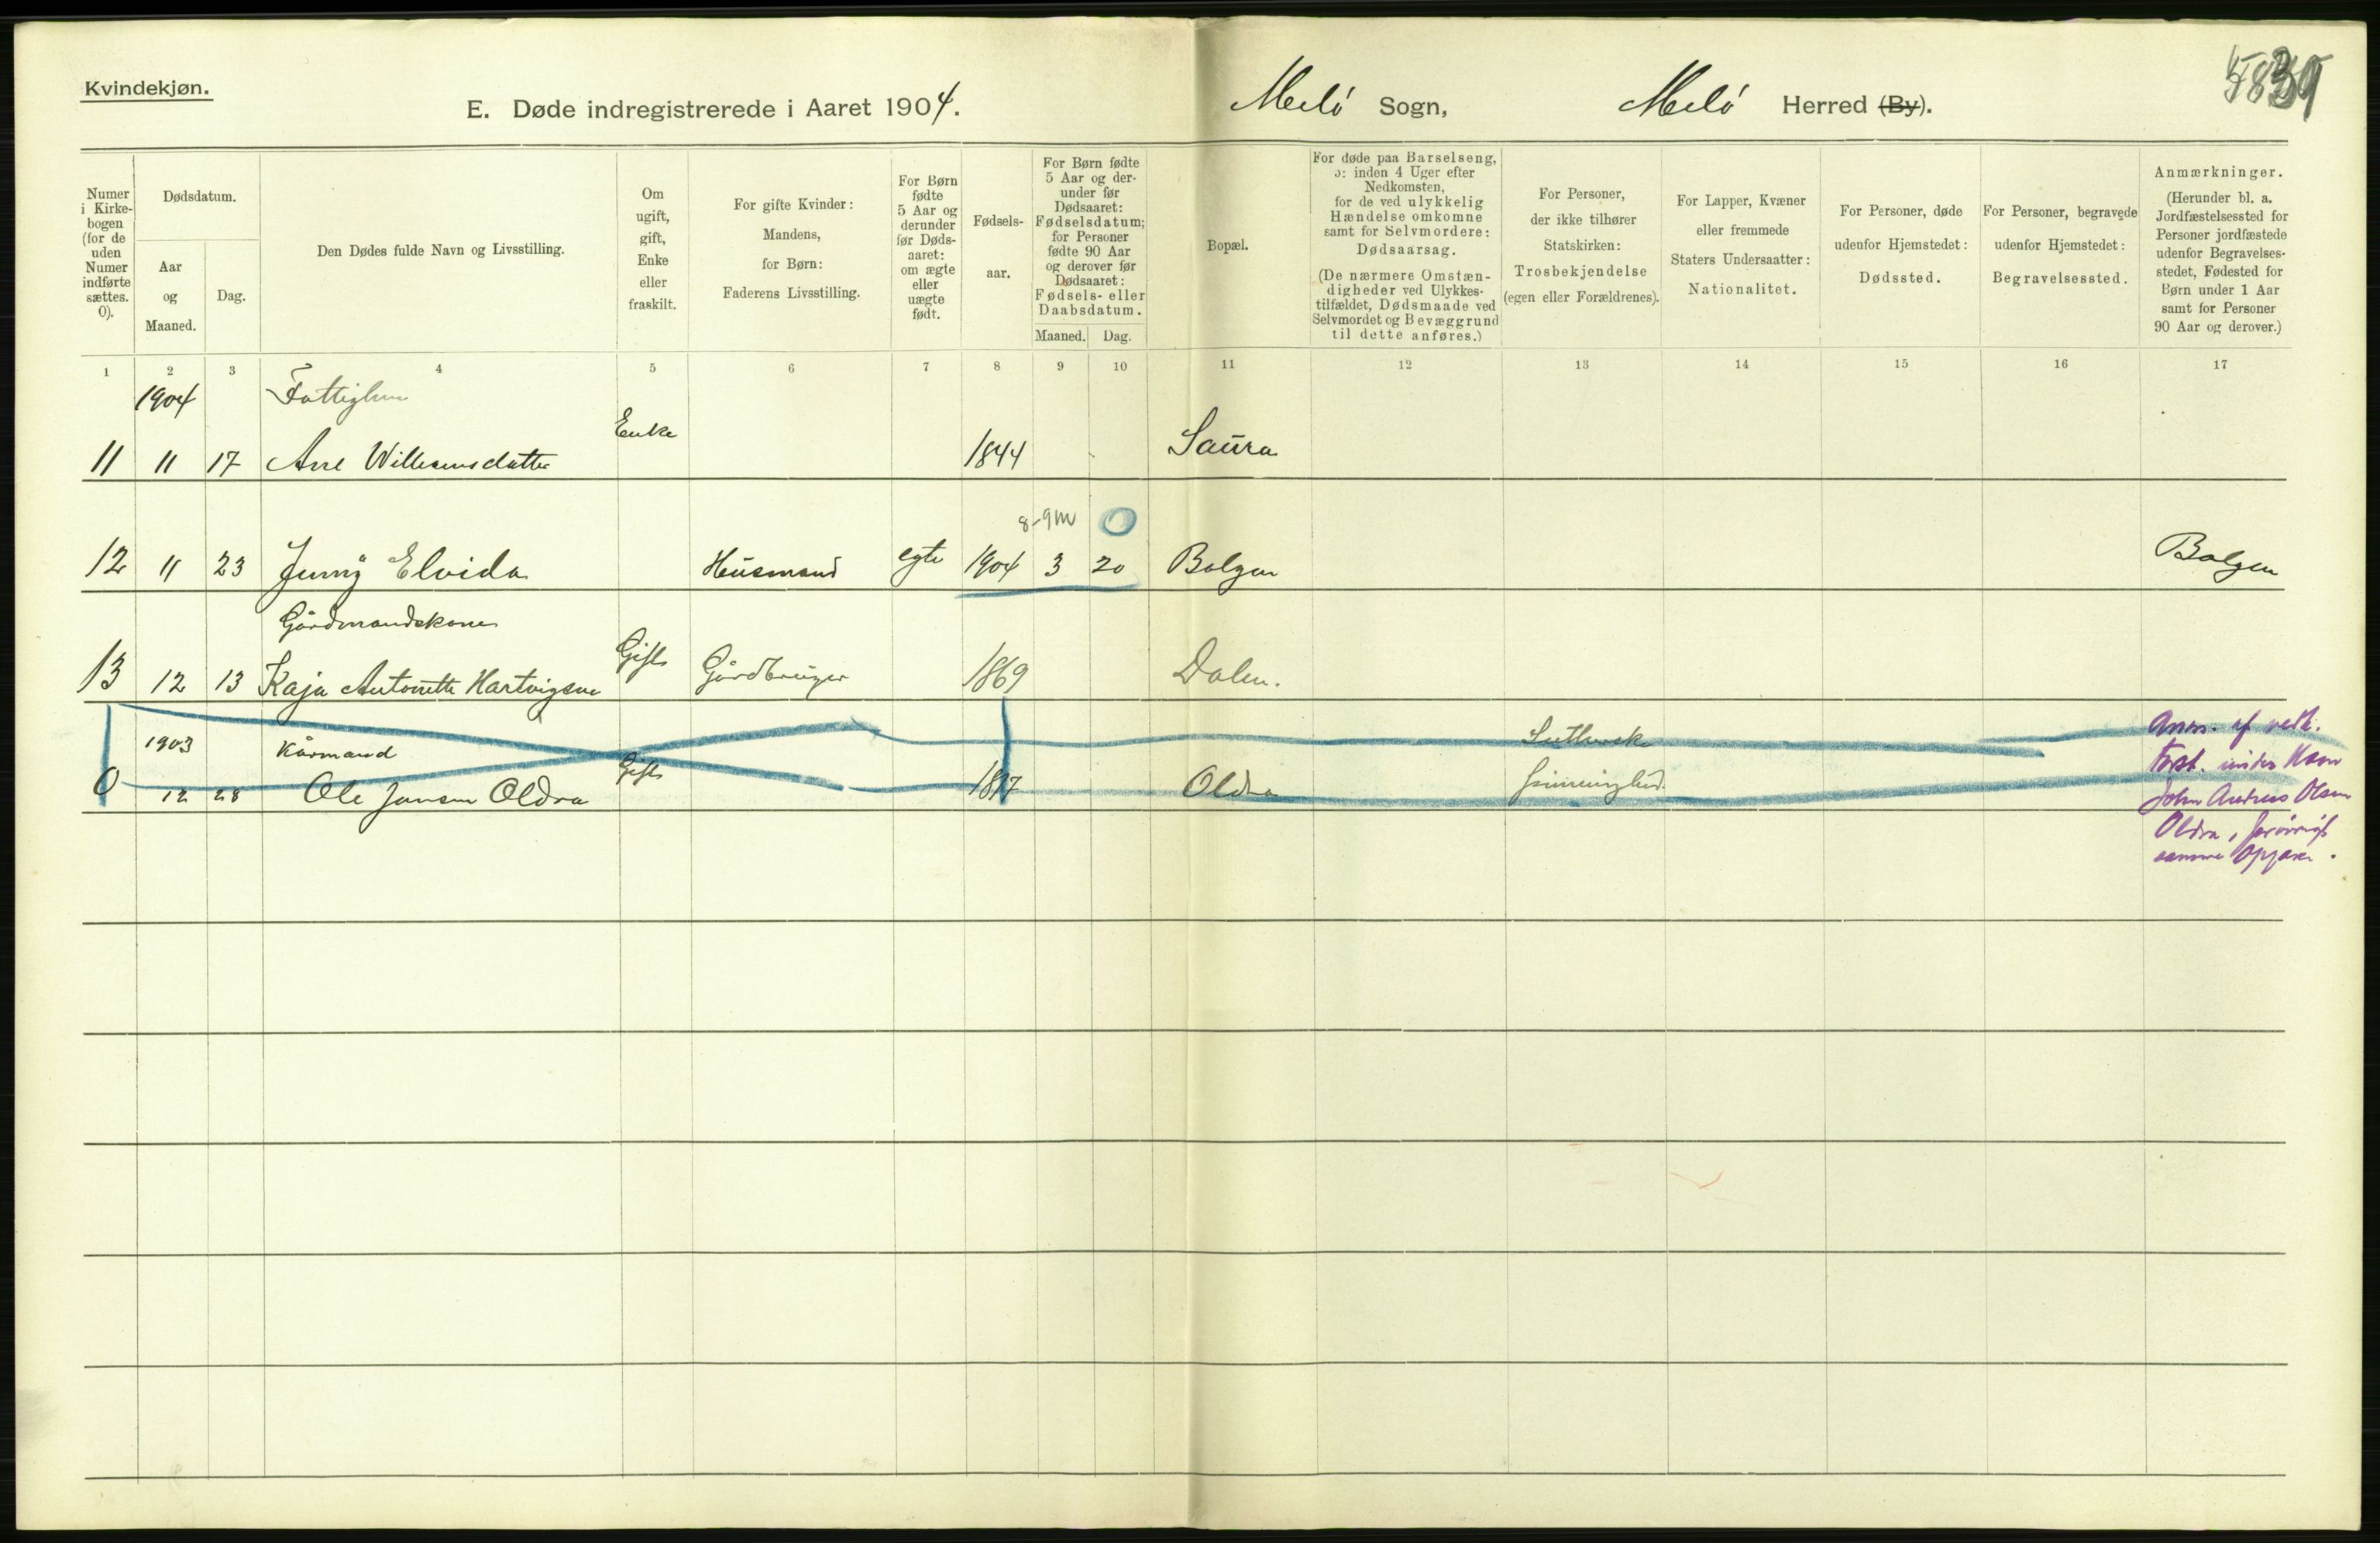 Kvindekjøn.
E. Døde indregistrerede i Aaret 1904.
Melö Sogn, Melö Herred (By).
Numer
i Kirke-
bogen
(for de
uden
Numer
indførte
sættes.
0).
Dødsdatum.
Aar
og
Maaned.
Dag.
Den Dødes fulde Navn og Livsstilling.
Om
ugift,
gift,
Enke
eller
fraskilt.
For gifte Kvinder:
Mandens,
for Børn:
Faderens Livsstilling.
For Børn
fødte
5 Aar og
derunder
før Døds-
aaret:
om ægte
eller
uægte
født.
Fødsels-
aar.
For Børn fødte
5 Aar og der-
under før
Dødsaaret:
Fødselsdatum;
for Personer
fødte 90 Aar
og derover før
Dødsaaret:
Fødsels- eller
Daabsdatum.
Maaned. Dag.
Bopæl.
For døde paa Barselseng,
ɔ: inden 4 Uger efter
Nedkomsten,
for de ved ulykkelig
Hændelse omkomne
samt for Selvmordere:
Dødsaarsag.
(De nærmere Omstæn-
digheder ved Ulykkes-
tilfældet, Dødsmaade ved
Selvmordet og Bevæggrund
til dette anføres.)
For Personer,
der ikke tilhører
Statskirken:
Trosbekjendelse
(egen eller Forældrenes).
For Lapper, Kvæner
eller fremmede
Staters Undersaatter:
Nationalitet.
For Personer, døde
udenfor Hjemstedet:
Dødssted.
For Personer, begravede
udenfor Hjemstedet:
Begravelsessted.
Anmærkninger.
(Herunder bl. a.
Jordfæstelsessted for
Personer jordfæstede
udenfor Begravelses-
stedet, Fødested for
Børn under 1 Aar
samt for Personer
90 Aar og derover.)
1 2 3 4 5 6 7 8 9 10 11 12 13 14 15 16 17
1904 Fattiglem
11 11 17 Ane Willumsdatter Enke 1844 Saura
8-9 m 0
12 11 23 Jenny Elvida Husmand egte 1904 3 20 Bolgen Bolgen
Gårdmandskone
13 12 13 Kaja Antonette Hartvigsen Gift Gårdbruger 1869 Dalen.
1903 Kårmand Luthersk
0 12 28 Ole Jansen Oldra Gift 1817 Oldra
Anm. af vedk.
Forst. under Navn
John Andreas Olsen
Oldra, forøvrigt
samme Opgave.